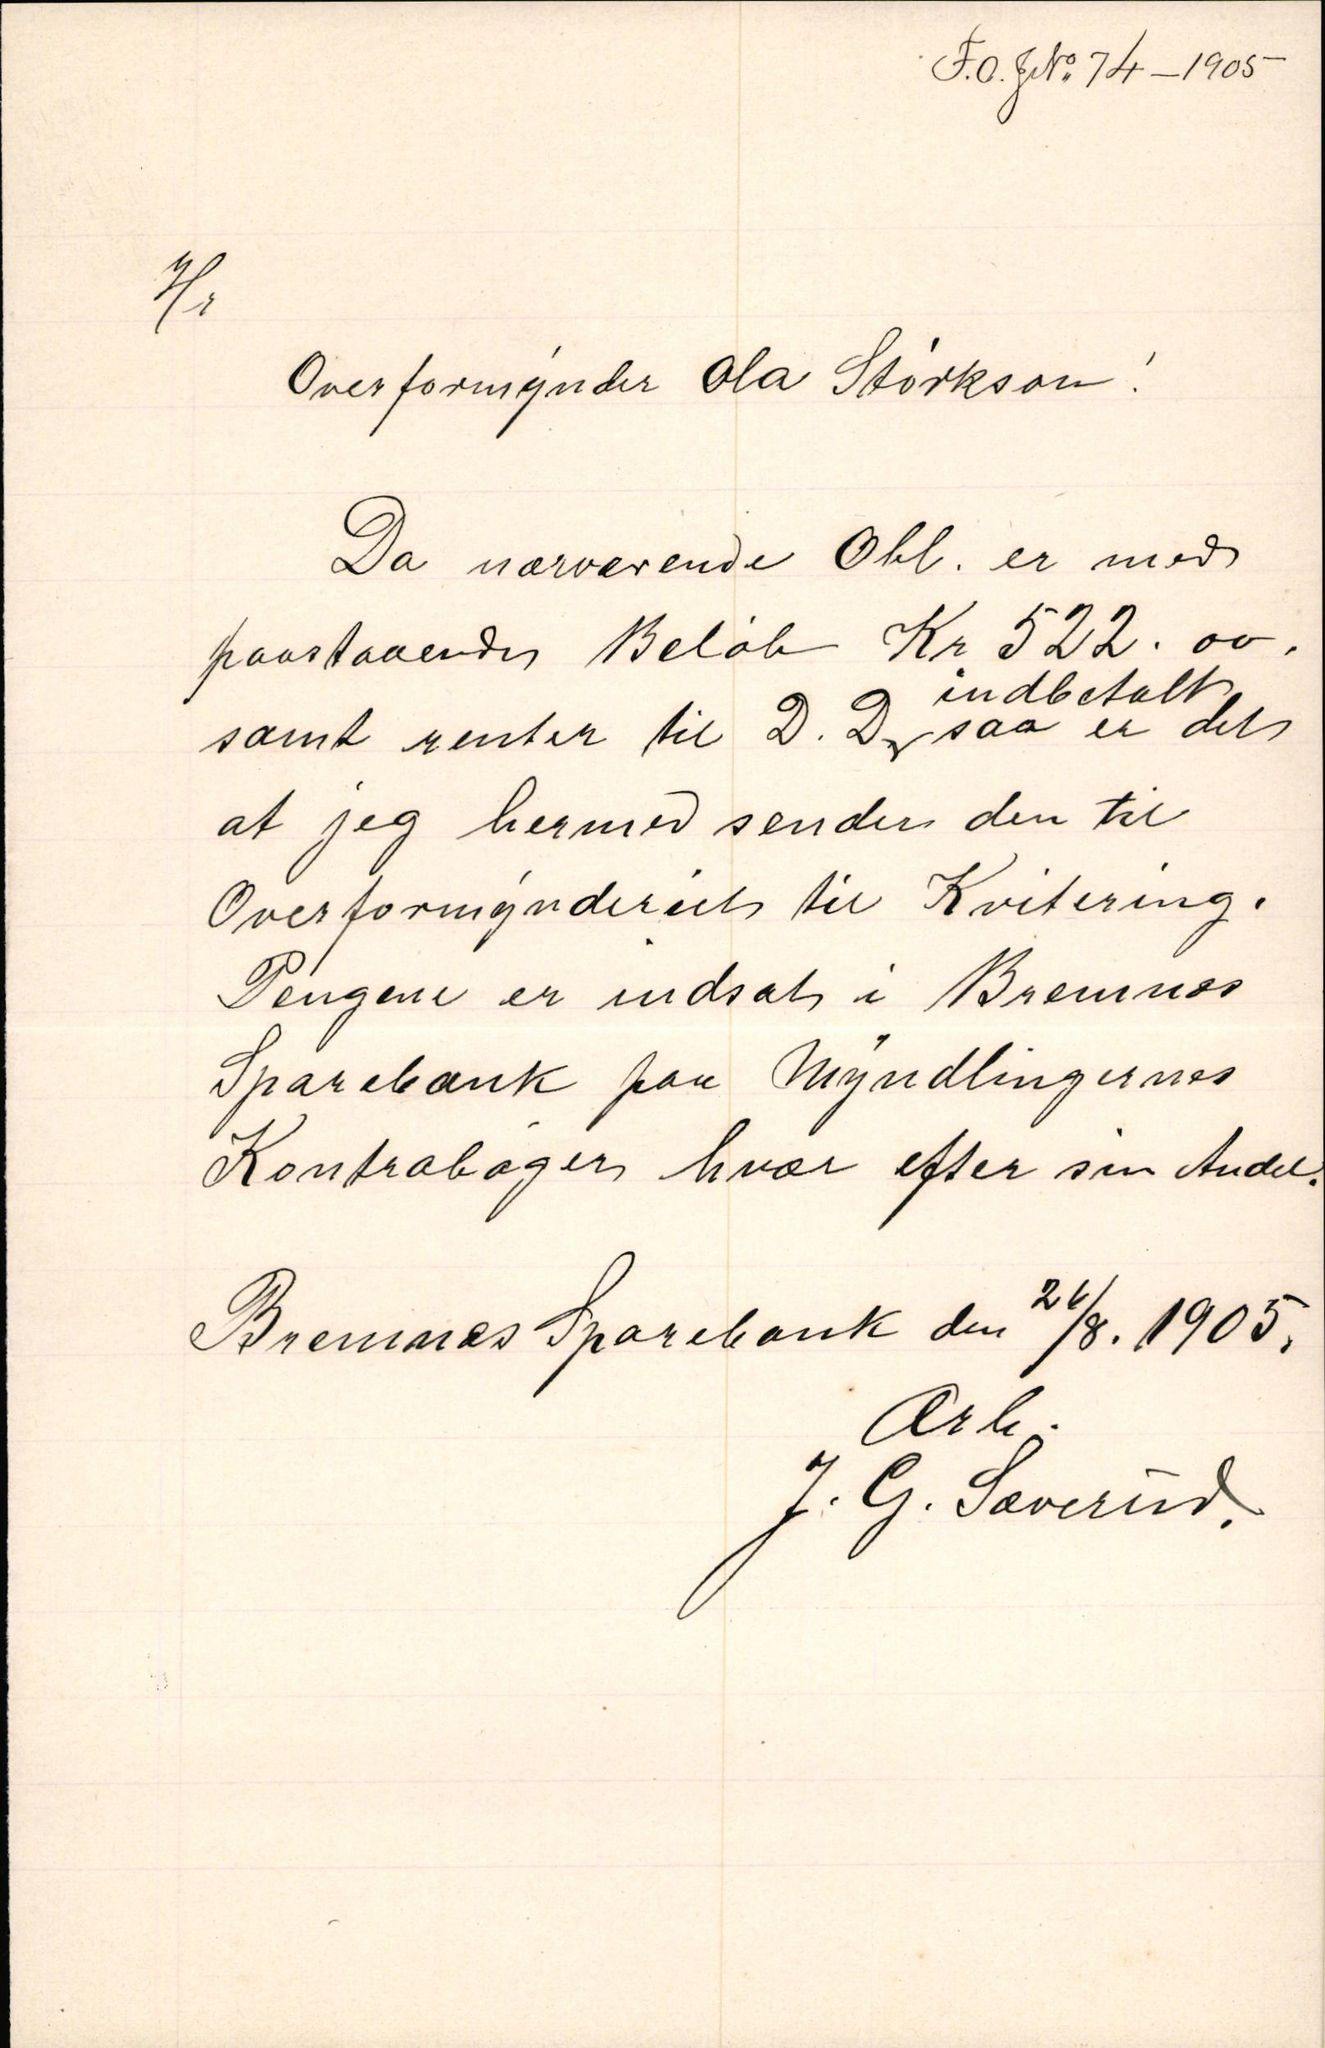 F.O.J.No. 74 – 1905
Hr
Overformynder Ola Störkson!
Da nærværende Obl. er med
paastaaende Belöb Kr 522.00.
indbetalt
samt renter til D. D. saa er det
at jeg hermed sender den til
Overformynderiet til Kvitering.
Pengene er indsat i Bremnes
Sparebank paa Myndlingernes
Kontraböger hvær efter sin Andel.
Bremnæs Sparebank den 26/8. 1905.
Ærb.
J. G. Sæverud.